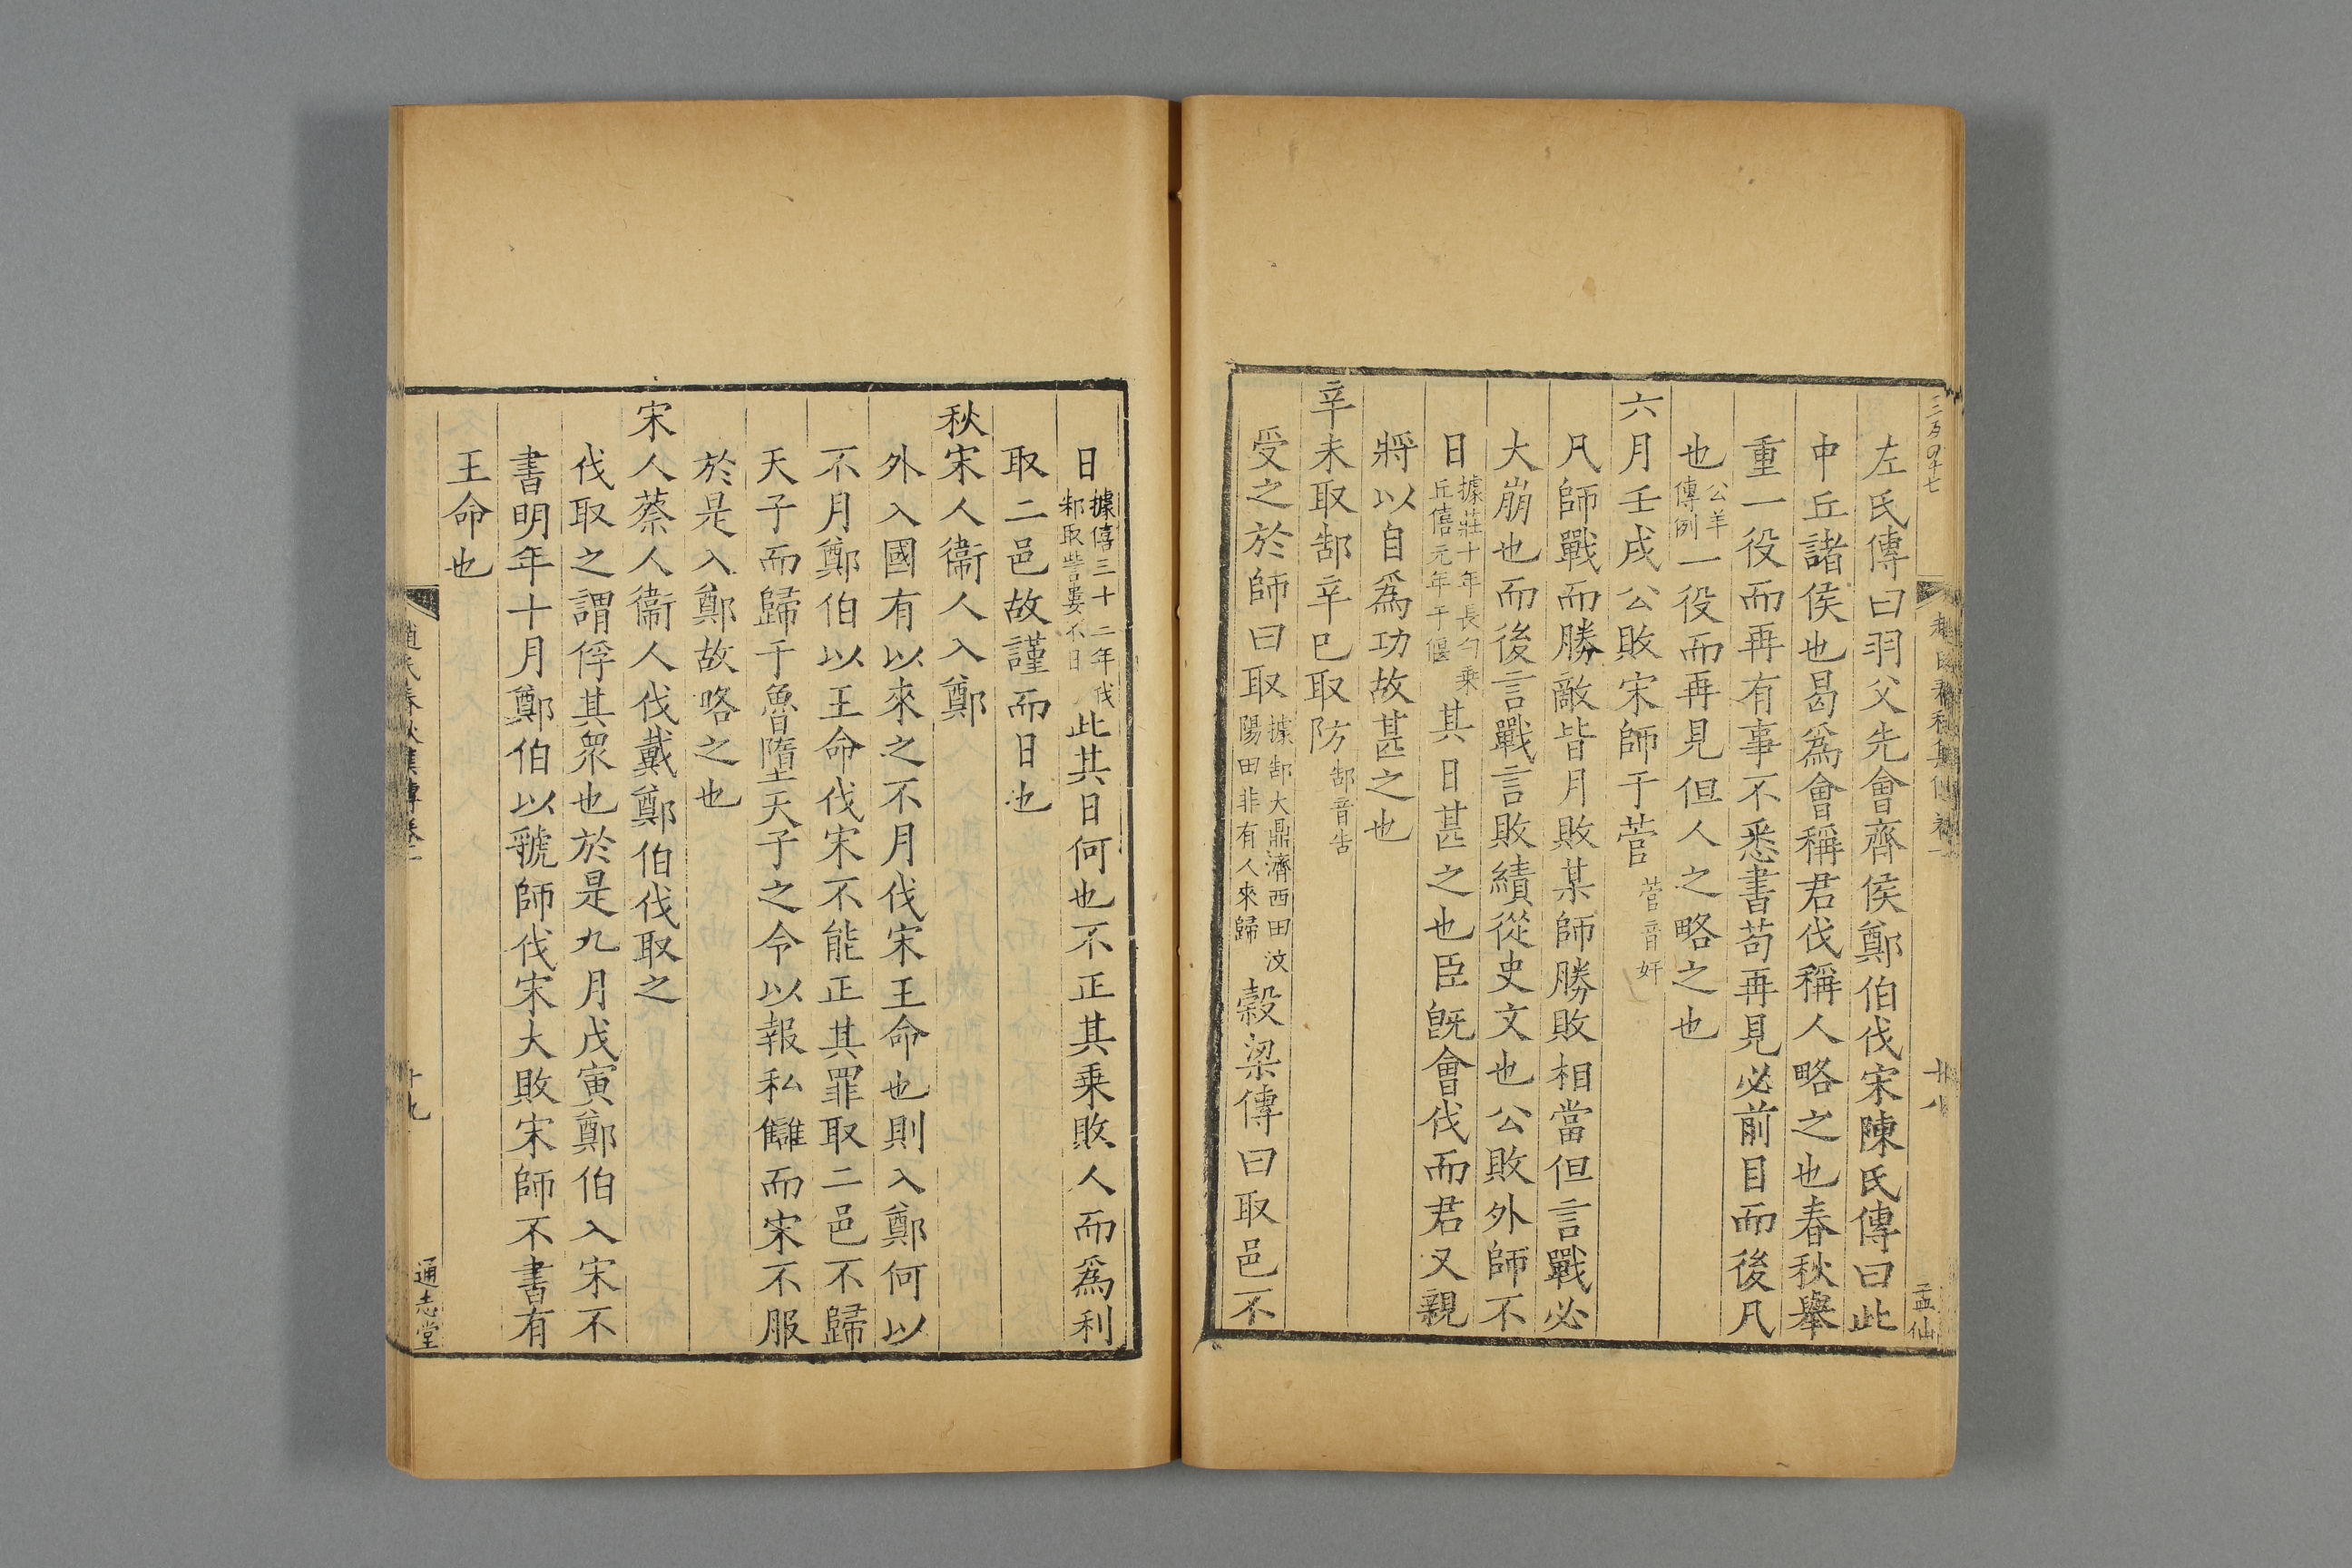 左氏傳曰羽父先會齊侯鄭伯伐宋陳氏傳曰此
中丘諸侯也曷爲會稱君伐稱人略之也春秋舉
重一役而再有事不悉書苟再見必前目而後凡
也公羊傳例一役而再見但人之略之也
六月壬戌公敗宋師于菅菅音奸
凡師戰而勝敵皆月敗某師勝敗相當但言戰必
大崩也而後言戰言敗績從史文也公敗外師不
日據莊十年長勺乘丘僖元年于偃其日甚之也臣旣會伐而君又親
將以自爲功故甚之也
辛未取郜辛巳取防郜音告
受之於師曰取據郜大鼎濟西田汶陽田非有人來歸穀梁傳曰取邑不
日據僖三十二年伐邾取訾婁不日此其日何也不正其乘敗人而爲利
取二邑故謹而日也
秋宋人衞人入鄭
外入國有以來之不月伐宋王命也則入鄭何以
不月鄭伯以王命伐宋不能正其罪取二邑不歸
天子而歸于魯隳天子之令以報私讎而宋不服
於是入鄭故略之也
宋人蔡人衞人伐戴鄭伯伐取之
伐取之謂俘其衆也於是九月戊寅鄭伯入宋不
書明年十月鄭伯以虢師伐宋大敗宋師不書有
王命也
十九
通志堂